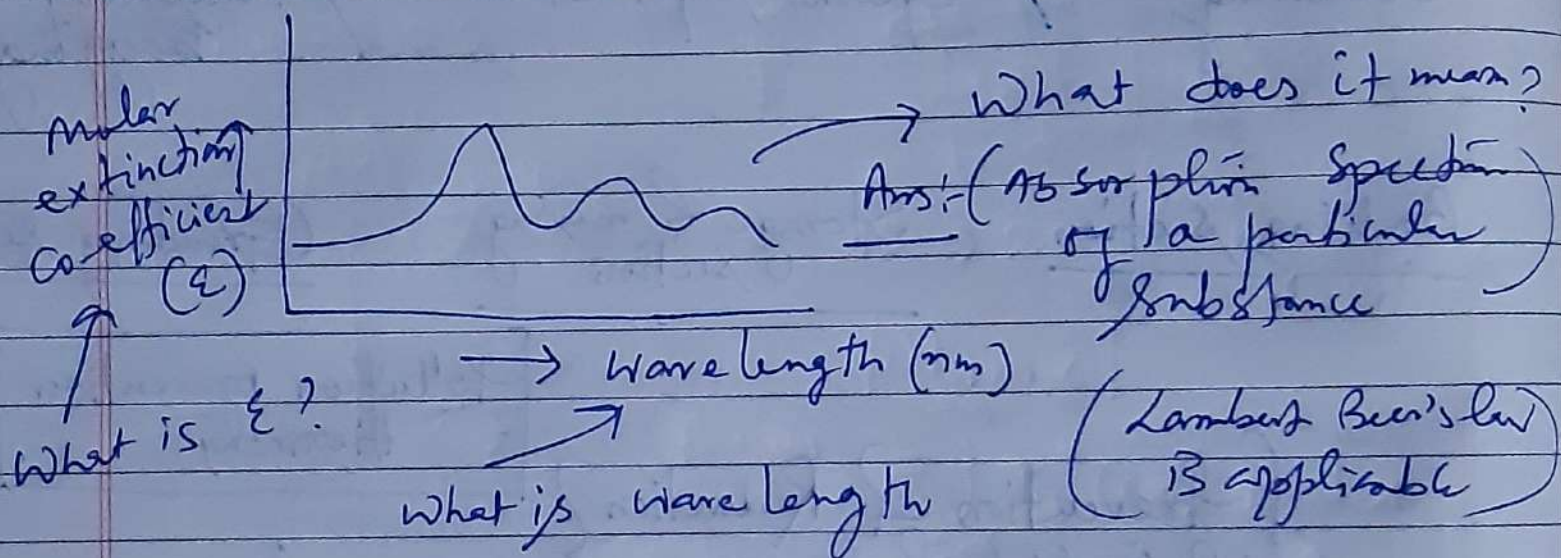 Molar
extinction
Co-efficient
(ε)
What is ε?
→ What does it mean?
Ans:- (Absorption Spectrum
of a particular
Substance)
→ Wavelength (nm)
What is wavelength
(Lambert Beer's law
is applicable)